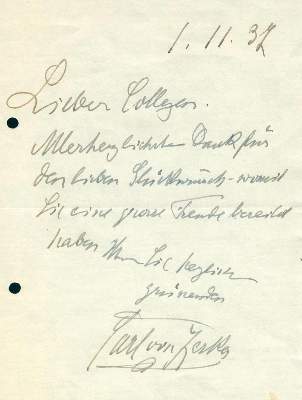 1. 11. 37
Lieber Collegen.
Allerherzlichsten Dank für
den lieben Glückwunsch - womit
Sie eine grosse Freude bereitet
haben Ihr Sie herzlich
grüssenden
Carl von